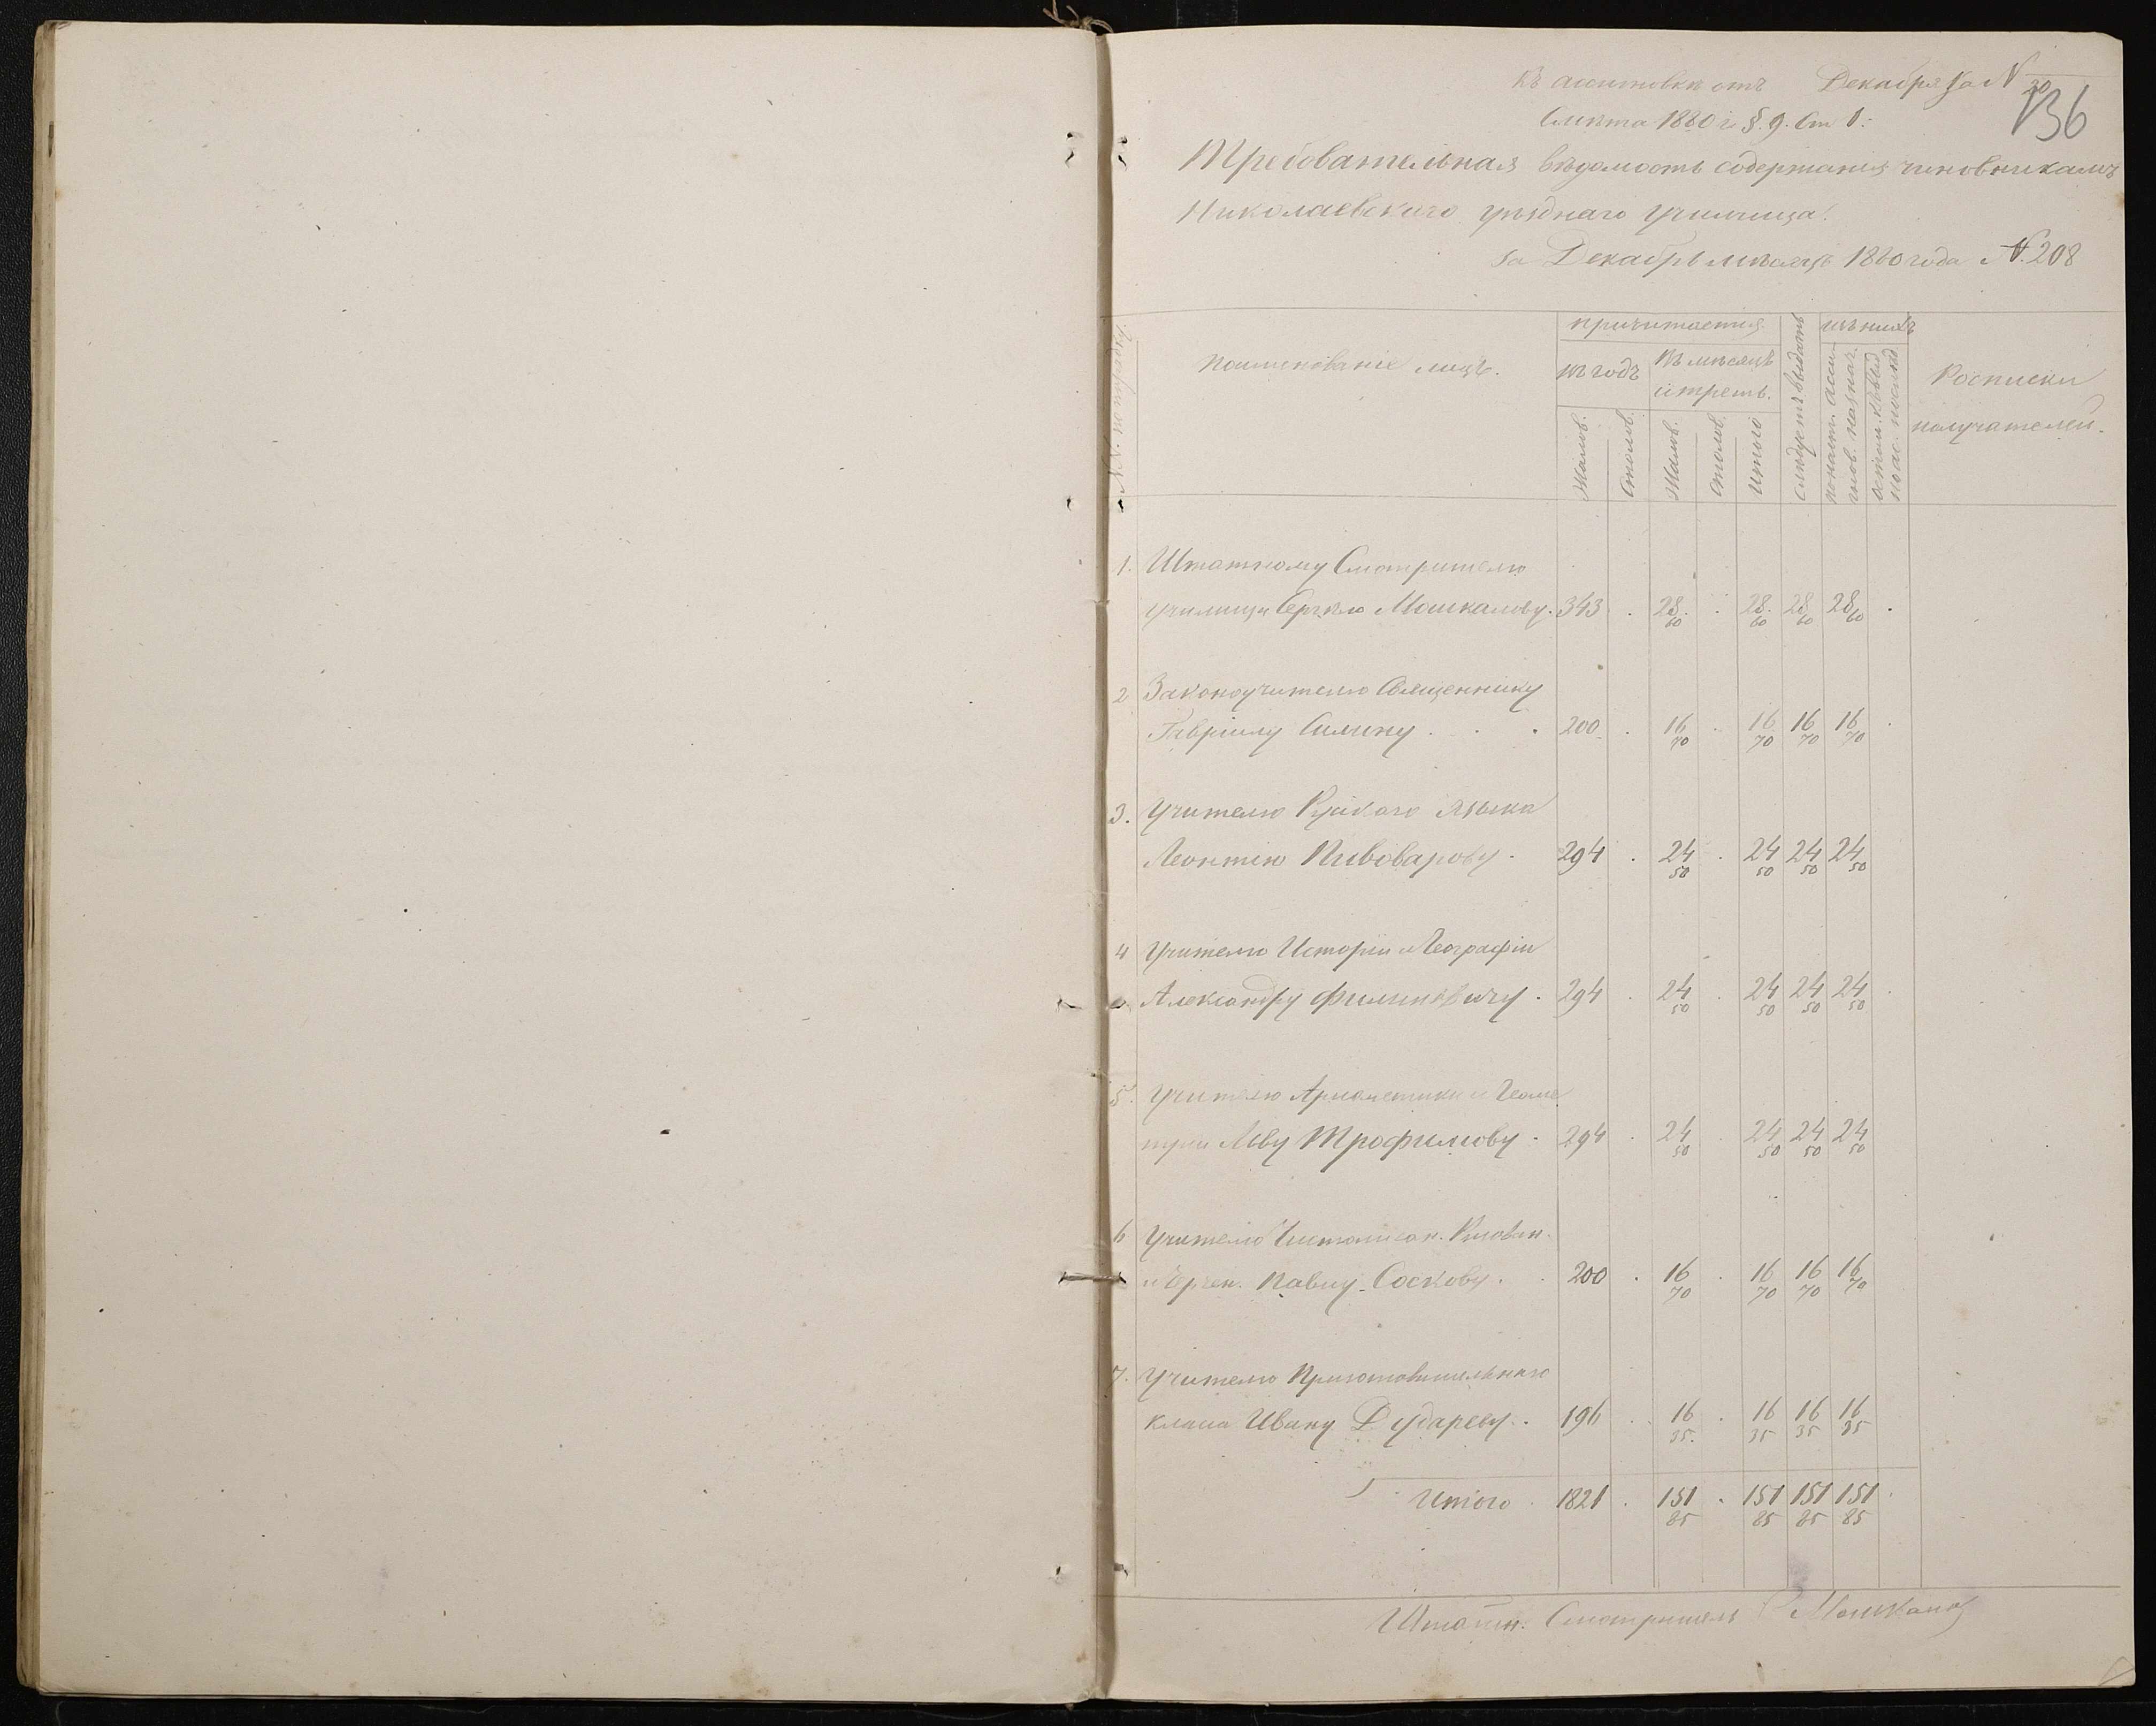 Къ ассигновки отъ Декабря за N 30
136
Смѣта 1880 г. §. 9. Ст 1.
Требовательная вѣдомость содержанія чиновникамъ
Николаевского уѣзднаго училища.
За Декабрь мѣсяцъ 1880 года N. 208
Поименованіе лицъ.
причитается
въ годъ
Въ мѣсяцъ
и треть.
Жалов.
Столов.
Жалов.
Столов.
Итого
Слѣдуетъ выдать
изъ нихъ
Росписки
получателей.
1. Штатному Смотрителю
училища Сергѣю Машкалову. 343 . 28 60 . 28 60 28 60 28 60 .
2 Законоучителю Священнику
Гавріилу Силину . . . 200 . 16 70 . 16 70 16 70 16 70 .
3. Учителю Рускаго языка
Леонтію Пивоварову . 294 . 24 50 . 24 50 24 50 24 50
4 Учителю Исторіи и Географіи
Александру Филиповичу . 294 . 24 50 . 24 50 24 50 24 50 .
5. Учителю Арифметики и Геоме
тріи Льву Трофимову . 294 . 24 50 . 24 50 24 50 24 50
6 Учителю Чистописан. Рисован.
и Черчен. Павлу Соскову . . 200 . 16 70 . 16 70 16 70 16 70
7. Учителю Приготовительнаго
класса Ивану Дудареву . 196 . 16 35 . 16 35 16 35 16 35
Итого . 1821 . 151 85 . 151 85 151 85 151 85 .
Штатн. Смотритель С Машкаловъ